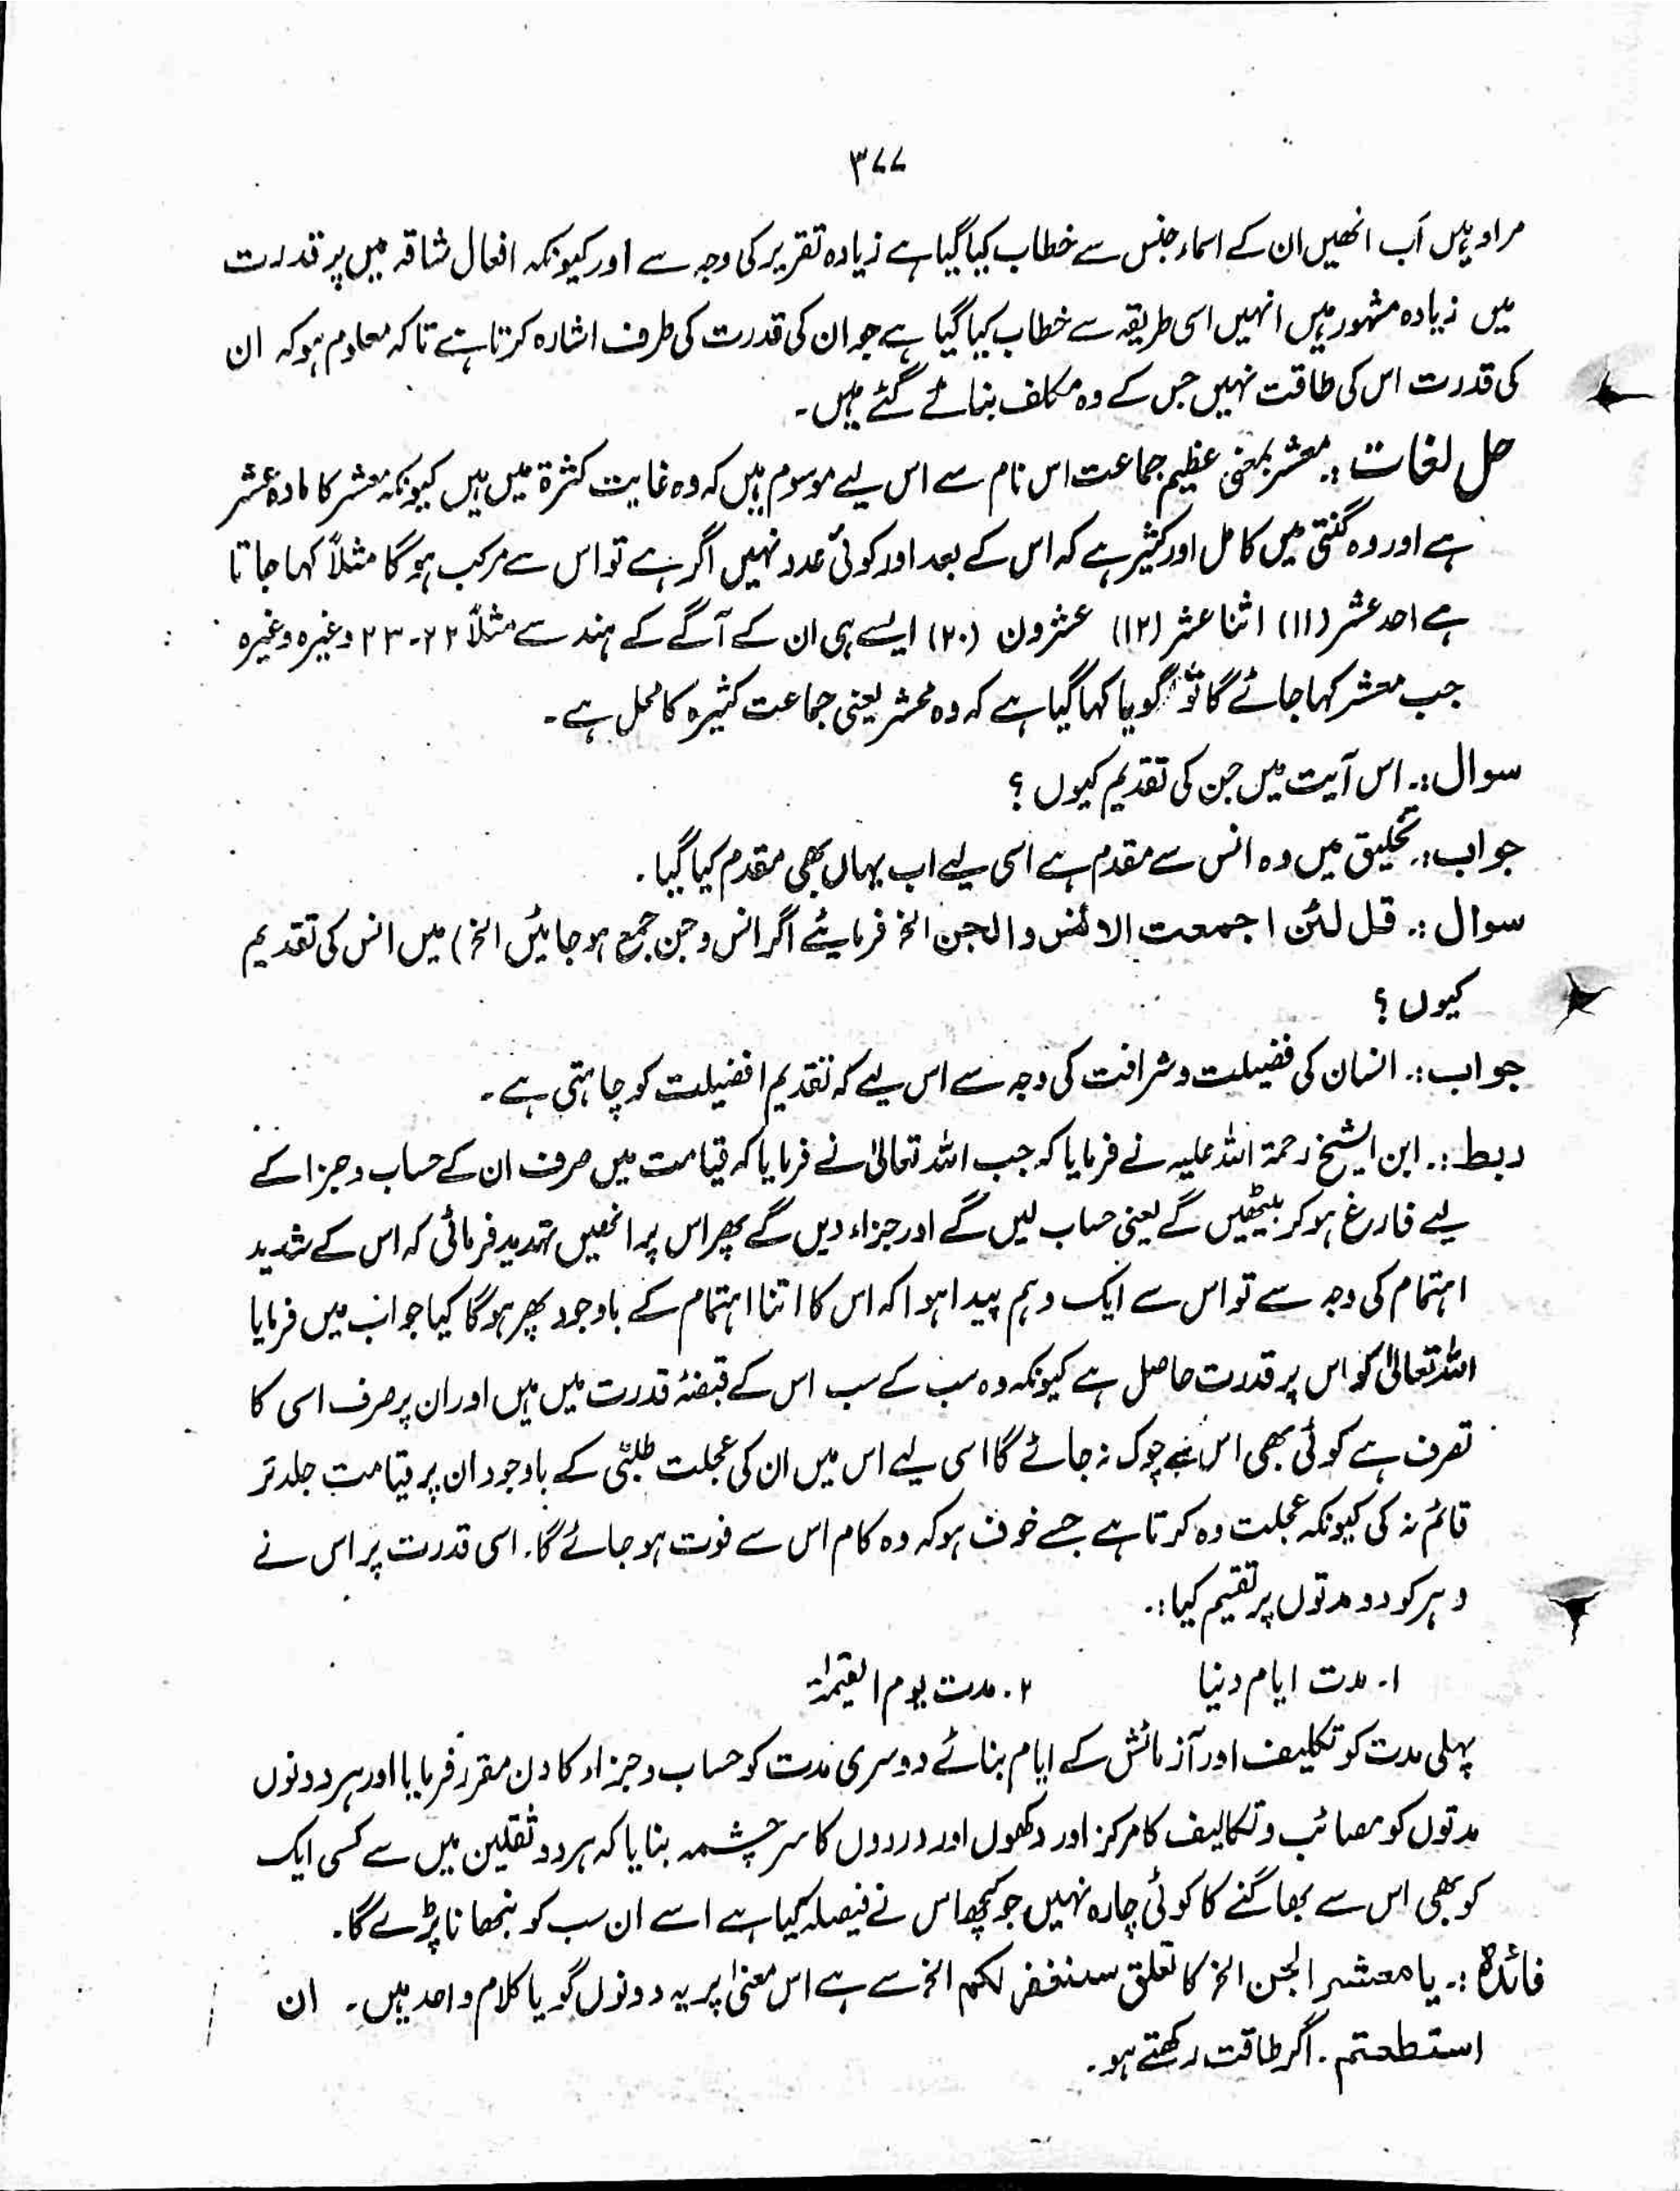 ۳۷۷
مراد ہیں اَب انھیں ان کے اسماء جنس سے خطاب کیا گیا ہے زیادہ تقریر کی وجہ سے اور کیونکہ افعال شاقہ میں پر قدرت
میں زیادہ مشہور ہیں انہیں اسی طریقہ سے خطاب کیا گیا ہے جو ان کی قدرت کی طرف اشارہ کرتا ہے تاکہ معلوم ہو کہ ان
کی قدرت اس کی طاقت نہیں جس کے وہ مکلف بنائے گئے ہیں۔
حل لغات :۔ معشر بمعنی عظیم جماعت اس نام سے اس لیے موسوم ہیں کہ وہ غایت کثرۃ میں ہیں کیونکہ معشر کا مادہ عشر
ہے اور وہ گنتی میں کامل اور کثیر ہے کہ اس کے بعد اور کوئی عدد نہیں اگر ہے تو اس سے مرکب ہوگا مثلاً کہا جاتا
ہے احد عشر (۱۱) اثنا عشر (۱۲) عشرون (۲۰) ایسے ہی ان کے آگے کے ہندسے مثلاً ۲۲-۲۳ وغیرہ وغیرہ
جب معشر کہا جائے گا تو گویا کہا گیا ہے کہ وہ محشر یعنی جماعت کثیرہ کا محل ہے۔
سوال :۔ اس آیت میں جن کی تقدیم کیوں ؟
جواب :۔ تخلیق میں وہ انس سے مقدم ہے اسی لیے اب یہاں بھی مقدم کیا گیا۔
سوال :۔ قل لئن اجمعت الائنس والجن الخ فرمایئے اگر انس و جن جمع ہو جائیں الخ) میں انس کی تقدیم
کیوں ؟
جواب :۔ انسان کی فضیلت و شرافت کی وجہ سے اس لیے کہ تقدیم افضیلت کو چاہتی ہے۔
ربط :۔ ابن الشیخ رحمۃ اللہ علیہ نے فرمایا کہ جب اللہ تعالیٰ نے فرمایا کہ قیامت میں صرف ان کے حساب و جزا کے
لیے فارغ ہو کر بیٹھیں گے یعنی حساب لیں گے اور جزاء دیں گے پھر اس پر انھیں تہدید فرمائی کہ اس کے شدید
اہتمام کی وجہ سے تو اس سے ایک وہم پیدا ہوا کہ اس کا اتنا اہتمام کے باوجود پھر ہوگا کیا جواب میں فرمایا
اللہ تعالیٰ کو اس پر قدرت حاصل ہے کیونکہ وہ سب کے سب اس کے قبضۂ قدرت میں ہیں اور ان پر صرف اسی کا
تصرف ہے کوئی بھی اس سے چوک نہ جائے گا اسی لیے اس میں ان کی عجلت طلبی کے باوجود ان پر قیامت جلد تر
قائم نہ کی کیونکہ عجلت وہ کرتا ہے جسے خوف ہو کہ وہ کام اس سے فوت ہو جائے گا۔ اسی قدرت پر اس نے
دہر کو دو مدتوں پر تقسیم کیا :۔
۱۔ مدت ایام دنیا ۲۔ مدت یوم القیمۃ
پہلی مدت کو تکلیف اور آزمائش کے ایام بنائے دوسری مدت کو حساب و جزاء کا دن مقرر فرمایا اور ہر دونوں
مدتوں کو مصائب و تکالیف کا مرکز اور دکھوں اور دردوں کا سرچشمہ بنایا کہ ہر دو ثقلین میں سے کسی ایک
کو بھی اس سے بھاگنے کا کوئی چارہ نہیں جو کچھ اس نے فیصلہ کیا ہے اسے ان سب کو نبھانا پڑے گا۔
فائدہ :۔ یا معشر الجن الخ کا تعلق سنفرغ لکم الخ سے ہے اس معنیٰ پر یہ دونوں گویا کلام واحد ہیں۔ ان
استطعتم۔ اگر طاقت رکھتے ہو۔